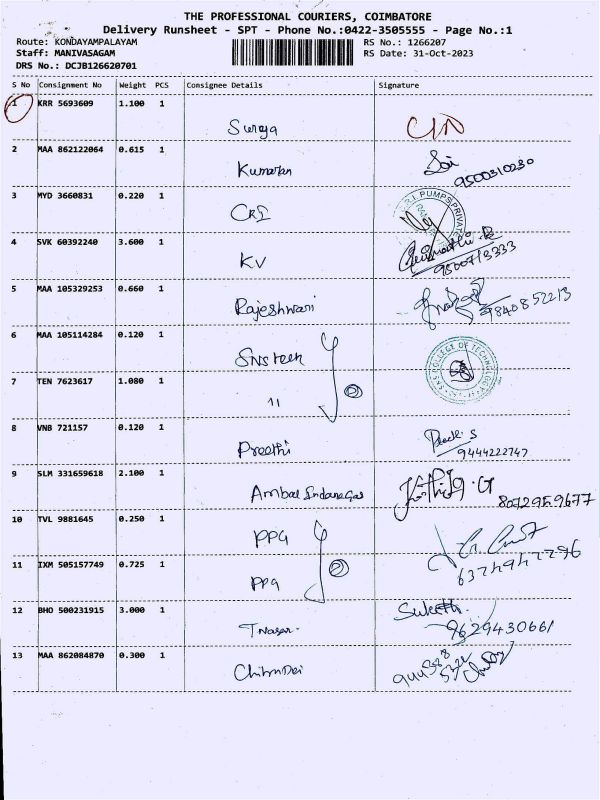 THE PROFESSIONAL COURIERS, COIMBATORE
Delivery Runsheet - SPT - Phone No.:0422-3505555 - Page No.:1
Route: KONDAYAMPALAYAM RS No.: 1266207
Staff: MANIVASAGAM RS Date: 31-Oct-2023
DRS No.: DCJB126620701
S No Consignment No Weight PCS Consignee Details Signature
1 KRR 5693609 1.100 1
Surya
2 MAA 862122064 0.615 1
Kumaran Sai
9500310230
3 MYD 3660831 0.220 1
CRI
4 SVK 60392240 3.600 1
KV
9500713333
5 MAA 105329253 0.660 1
Rajeshwari 9840852213
6 MAA 105114284 0.120 1
Sns tech
7 TEN 7623617 1.080 1
11 2
8 VNB 721157 0.120 1
Preethi 9444222747
9 SLM 331659618 2.100 1
Ambal Indanagas 8072959677
10 TVL 9881645 0.250 1
PPG
11 IXM 505157749 0.725 1
PPG 2
12 BHO 500231915 3.000 1
9629430661
13 MAA 862084870 0.300 1